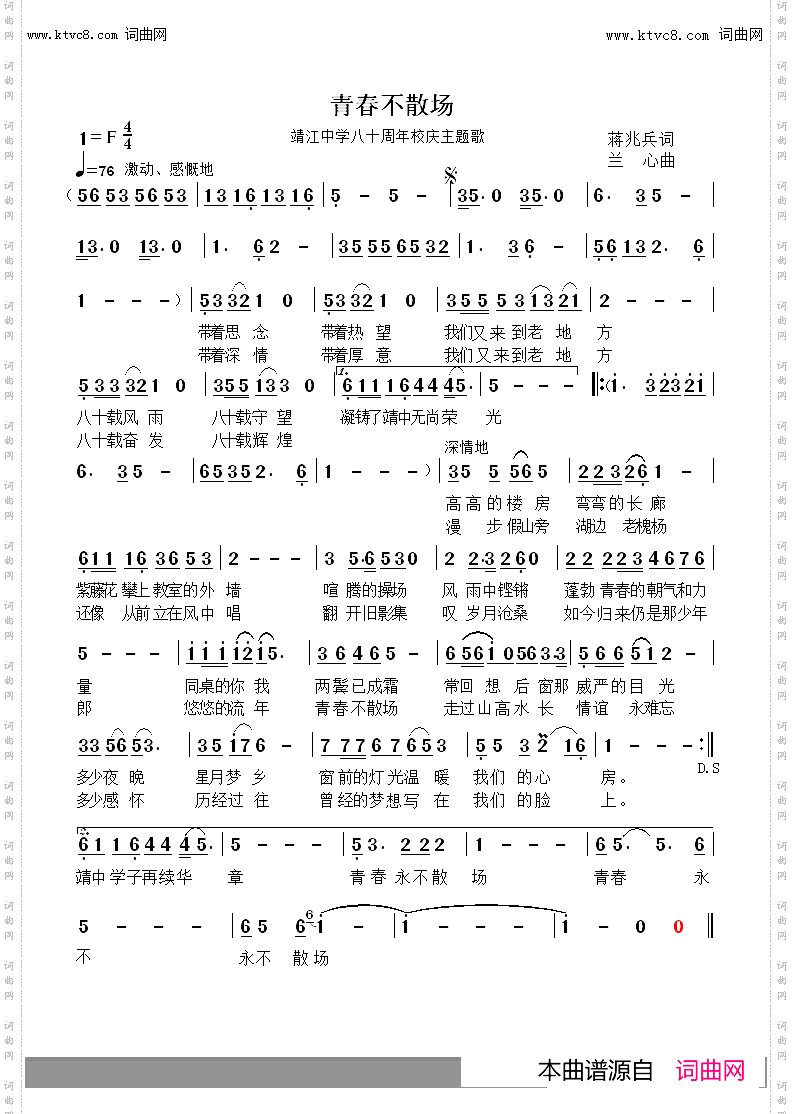 www.ktvc8.com 词曲网
www.ktvc8.com 词曲网
青春不散场
靖江中学八十周年校庆主题歌
1=F 4/4
蒋兆兵词
兰 心曲
♩=76 激动、感慨地
(56 53 56 53 | 13 16 13 16 | 5 - 5 - | 35. 0 35. 0 | 6. 35 - |
13. 0 13. 0 | 1. 6 2 - | 35 55 65 32 | 1. 36 - | 56 13 2. 6 |
1 - - -) | 53 32 1 0 | 53 32 1 0 | 355 53 13 21 | 2 - - - |
带着思 念 带着热 望 我们又来 到老 地 方
带着深 情 带着厚 意 我们又来 到老 地 方
1.
5333 32 1 0 | 355 13 3 0 | 611 16 44 45. | 5 - - - |: (1. 3 23 21 |
八十载风 雨 八十载守 望 凝铸了靖中无尚荣 光
八十载奋 发 八十载辉 煌
深情地
6. 35 - | 65 35 2. 6 | 1 - - -) | 35 5 56 5 | 223 26 1 - |
高高的楼 房 弯弯的长 廊
漫 步假山旁 湖边 老槐杨
611 16 36 53 | 2 - - - | 3 5.6 530 | 2 2.3 260 | 22 223 46 76 |
紫藤花 攀上教室的外 墙 喧 腾的操场 风 雨中铿锵 蓬勃 青春的朝气和力
还像 从前立在风中 唱 翻 开旧影集 叹 岁月沧桑 如今归来仍是那少年
5 - - - | 11 11 12 15. | 36 46 5 - | 6561 05 63 3.3 | 566 51 2 - |
量 同桌的你 我 两鬓已成霜 常回 想 后窗那 威严的目 光
郎 悠悠的流 年 青春不散场 走过山高水 长 情谊 永难忘
33 56 53. | 35 17 6 - | 7 77 67 653 | 55 3 2 16 | 1 - - - :|
D.S
多少夜 晚 星月梦 乡 窗前的灯光温 暖 我们 的心 房。
多少感 怀 历经过 往 曾经的梦想写 在 我们 的脸 上。
2.
61 16 44 45. | 5 - - - | 53. 222 | 1 - - - | 65. 5. 6 |
靖中学子再续华 章 青春永不散 场 青春 永
5 - - - | 65 66 1 - | 1 - - - | 1 - 0 0 ‖
不 永不 散场
本曲谱源自 词曲网